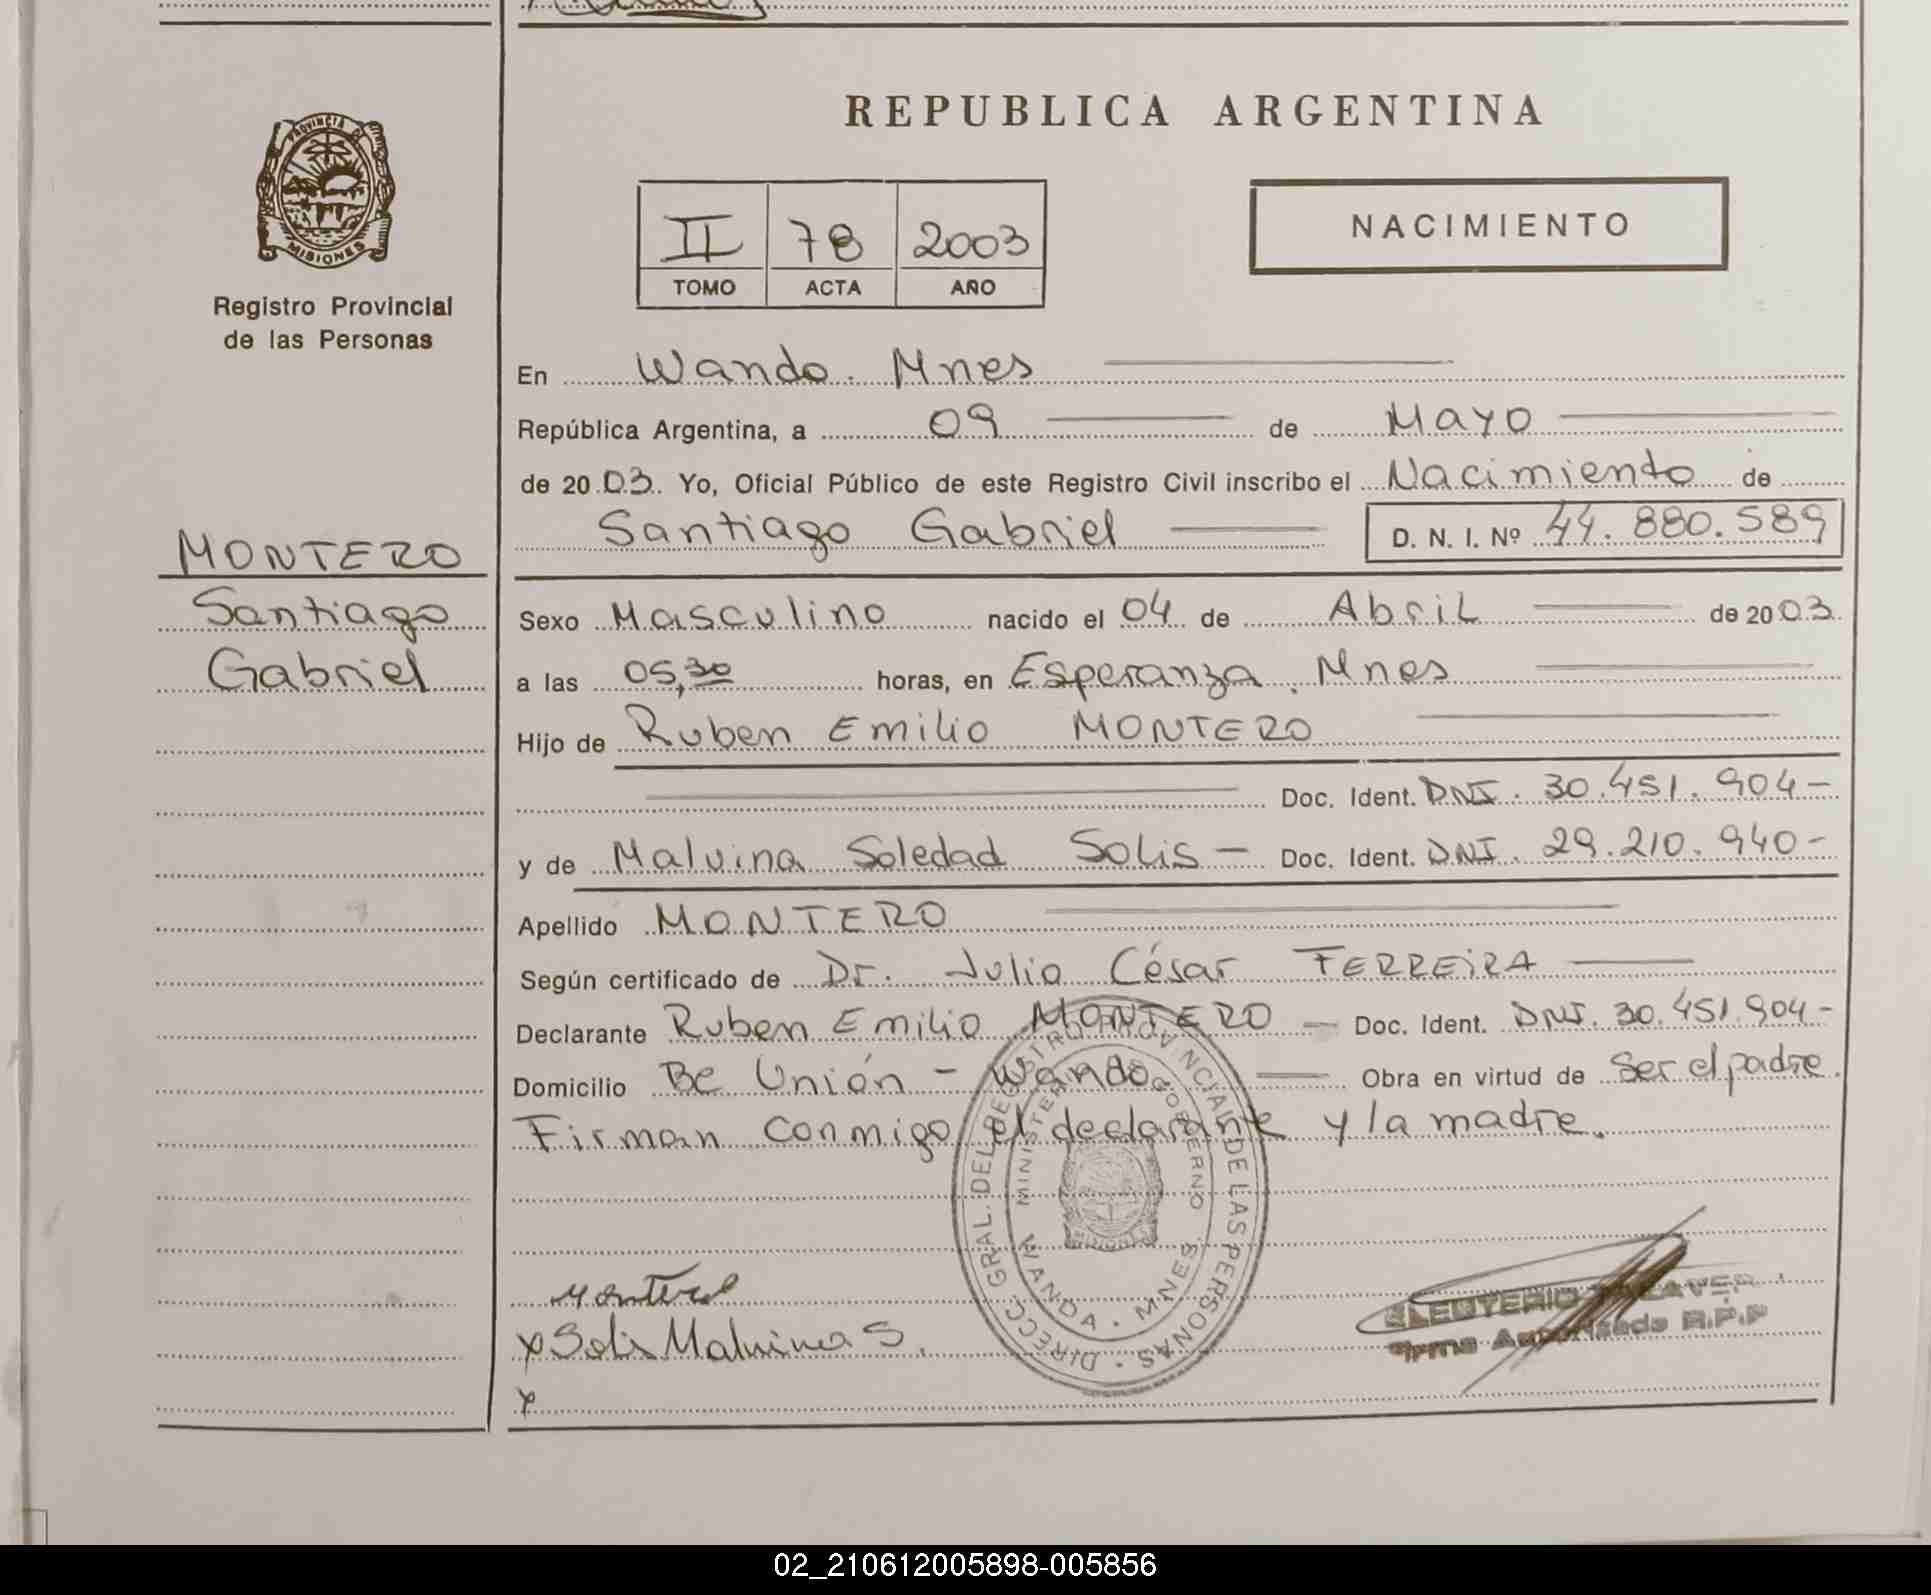 REPUBLICA ARGENTINA
PROVINCIA DE
MISIONES
Registro Provincial
de las Personas
II 78 2003
TOMO ACTA AÑO
NACIMIENTO
En Wanda. Mnes
República Argentina, a 09 de Mayo
de 2003. Yo, Oficial Público de este Registro Civil inscribo el Nacimiento de
Santiago Gabriel D. N. I. Nº 44.880.589
MONTERO
Santiago
Gabriel
Sexo Masculino nacido el 04 de Abril de 2003
a las 05,30 horas, en Esperanza. Mnes
Hijo de Ruben Emilio MONTERO
Doc. Ident. DNI. 30.451.904-
y de Malvina Soledad Solis - Doc. Ident. DNI. 29.210.940-
Apellido MONTERO
Según certificado de Dr. Julio César FERREiRA
Declarante Ruben Emilio MONTERO - Doc. Ident. DNI. 30.451.904-
Domicilio Be Unión - Wanda Obra en virtud de Ser el padre.
Firman conmigo el declarante y la madre.
DIRECC. GRAL. DEL REGISTRO PROVINCIAL DE LAS PERSONAS
MINISTERIO GOBIERNO
WANDA. MNES.
Montero
x Solis Malvina S.
x
ELEUTERIO
Firma Autorizada R.P.P
02_210612005898-005856